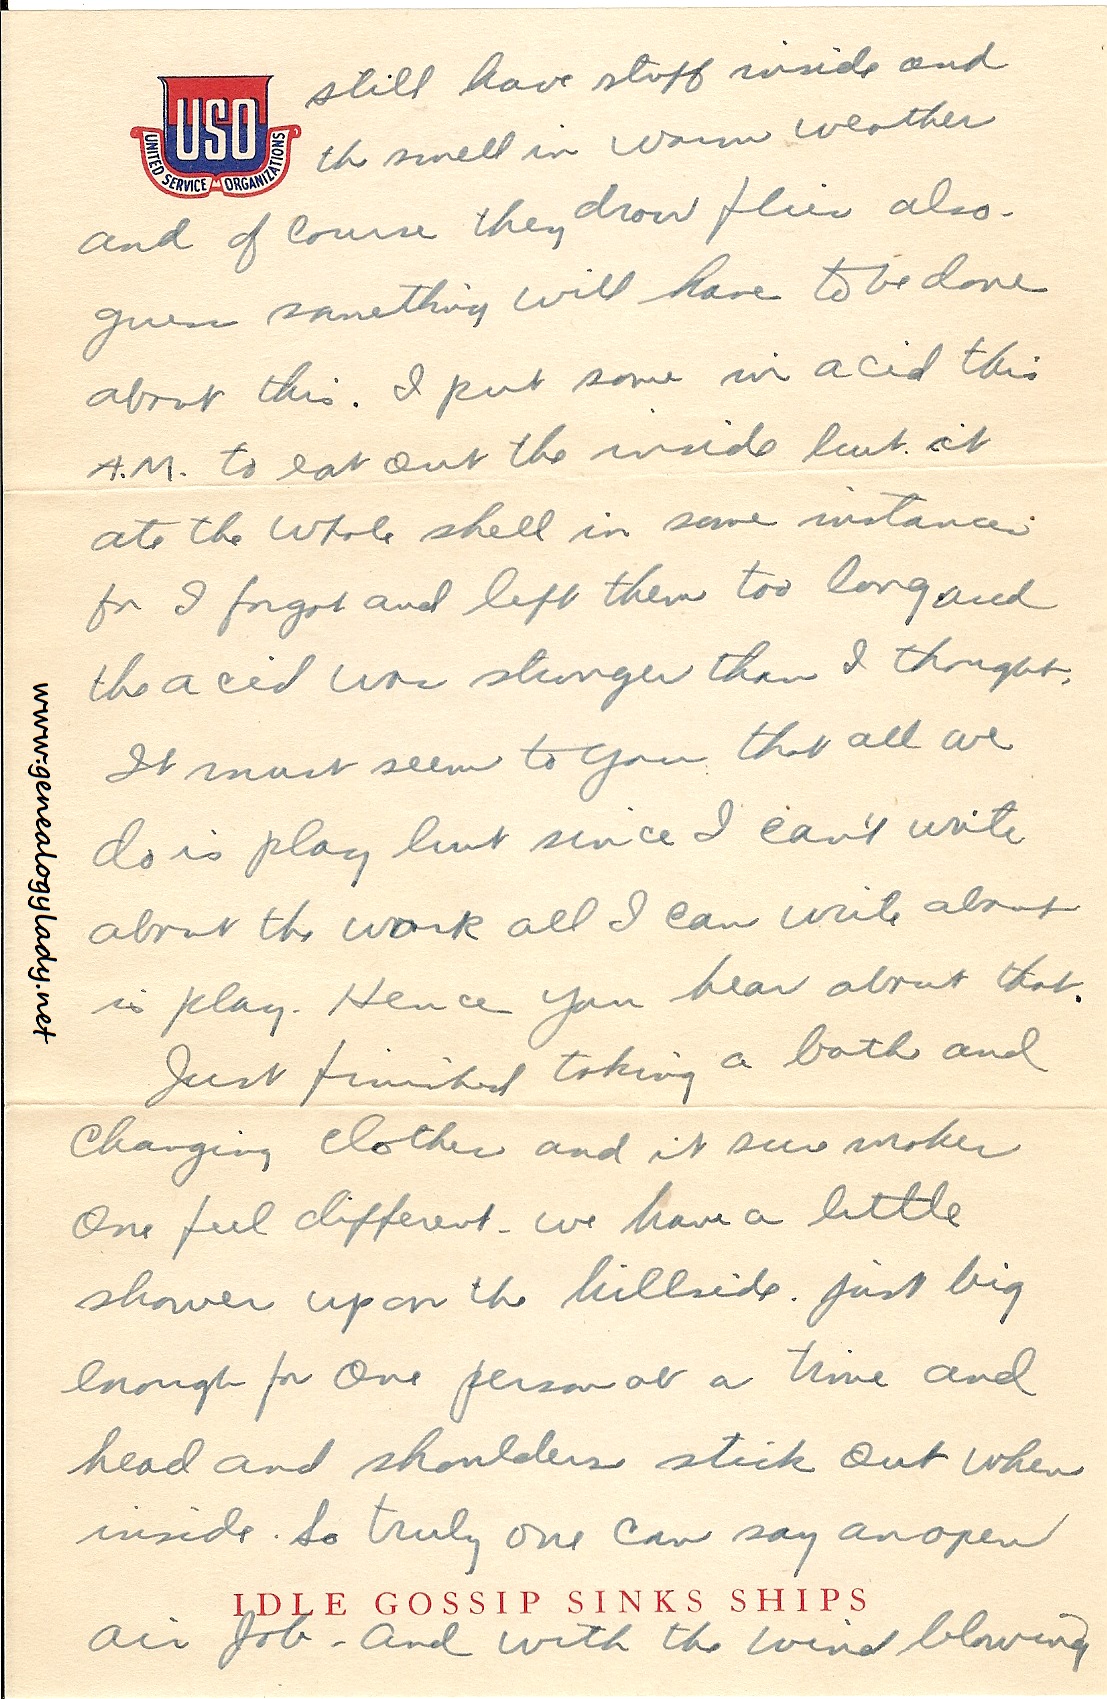 USO
UNITED SERVICE ORGANIZATIONS
still have stuff inside and
the smell in warm weather
and of course they draw flies also.
guess something will have to be done
about this. I put some in acid this
A.M. to eat out the inside but it
ate the whole shell in some instances
for I forgot and left them too long and
the acid was stronger than I thought.
It must seem to you that all we
do is play but since I can't write
about the work all I can write about
is play. Hence you hear about that.
Just finished taking a bath and
changing clothes and it sure makes
one feel different - we have a little
shower up on the hillside. just big
enough for one person at a time and
head and shoulders stick out when
inside. So truly one can say an open
IDLE GOSSIP SINKS SHIPS
air job - and with the wind blowing
www.genealogylady.net